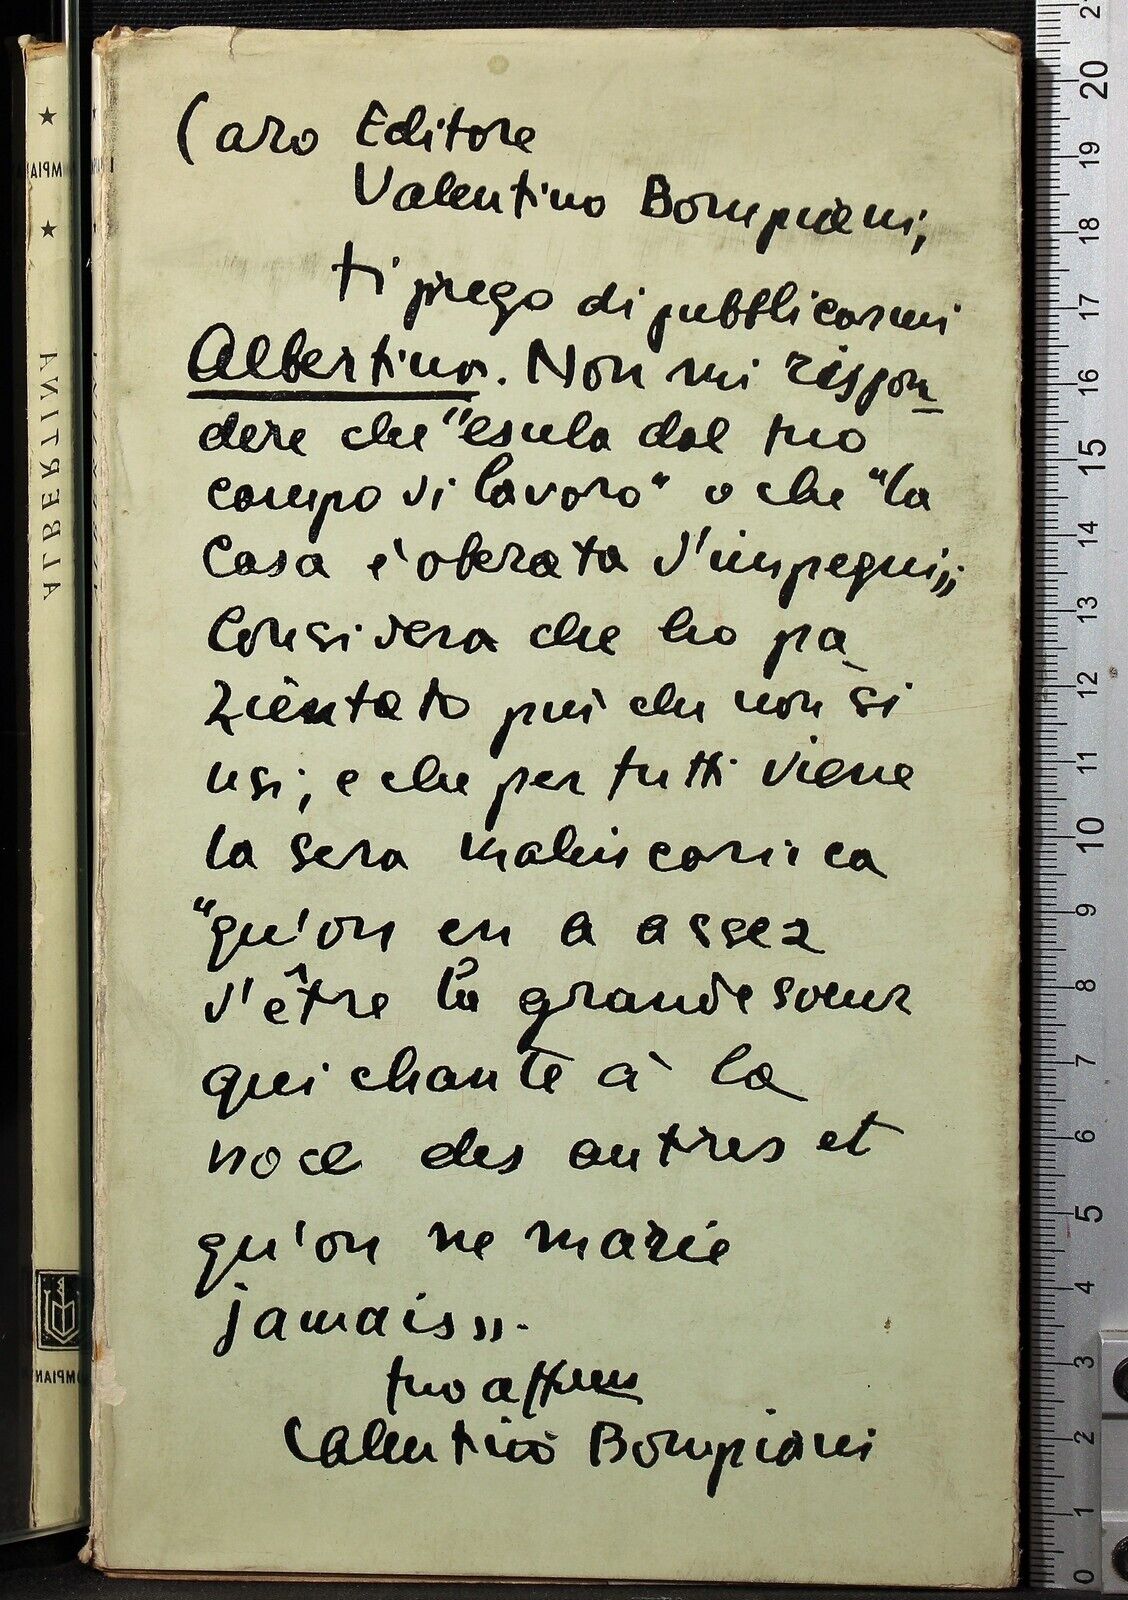 Caro Editore
Valentino Bompiani,
ti prego di pubblicarmi
Albertina. Non mi rispon
dere che "esula dal tuo
campo di lavoro" o che "la
Casa è oberata d'impegni„;
Considera che ho pa
zientato più che non si
usi; e che per tutti viene
la sera malinconica
"qu'on en a assez
d'être la grande sœur
qui chante à la
noce des autres et
qu'on ne marie
jamais„.
tuo affmo
Valentino Bompiani
ALBERTINA
21
20
19
18
17
16
15
14
13
12
11
10
9
8
7
6
5
4
3
2
1
0